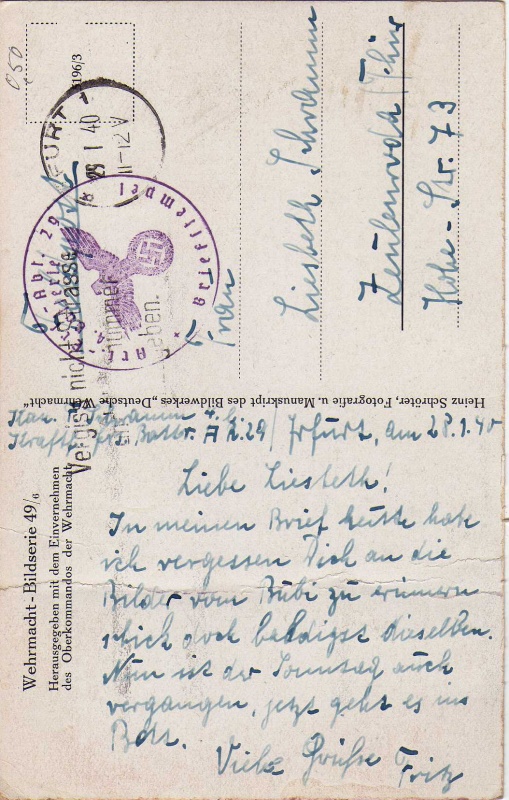 Wehrmacht-Bildserie 49/6
Herausgegeben mit dem Einvernehmen
des Oberkommandos der Wehrmacht
Heinz Schröter, Fotografie u. Manuskript des Bildwerkes „Deutsche Wehrmacht"
5196/3
050
FURT 1
29 1 40
11-12 V
Vergiß nicht Straße
nummer
geben.
Art.-Abt. 29
Briefstempel
Feldpost
Frau
Liesbeth Schramm
Zeulenroda / Thür
Hohe-Str. 73
Kan. F. Schramm 4.
Kraftf. Battr. A R. 29 / Erfurt, am 28.1.40
Liebe Liesbeth!
In meinen Brief heute habe
ich vergessen Dich an die
Bilder vom Bubi zu erinnern
schick doch baldigst dieselben.
Nun ist der Sonntag auch
vergangen, jetzt geht es ins
Bett.
Viele Grüße Fritz